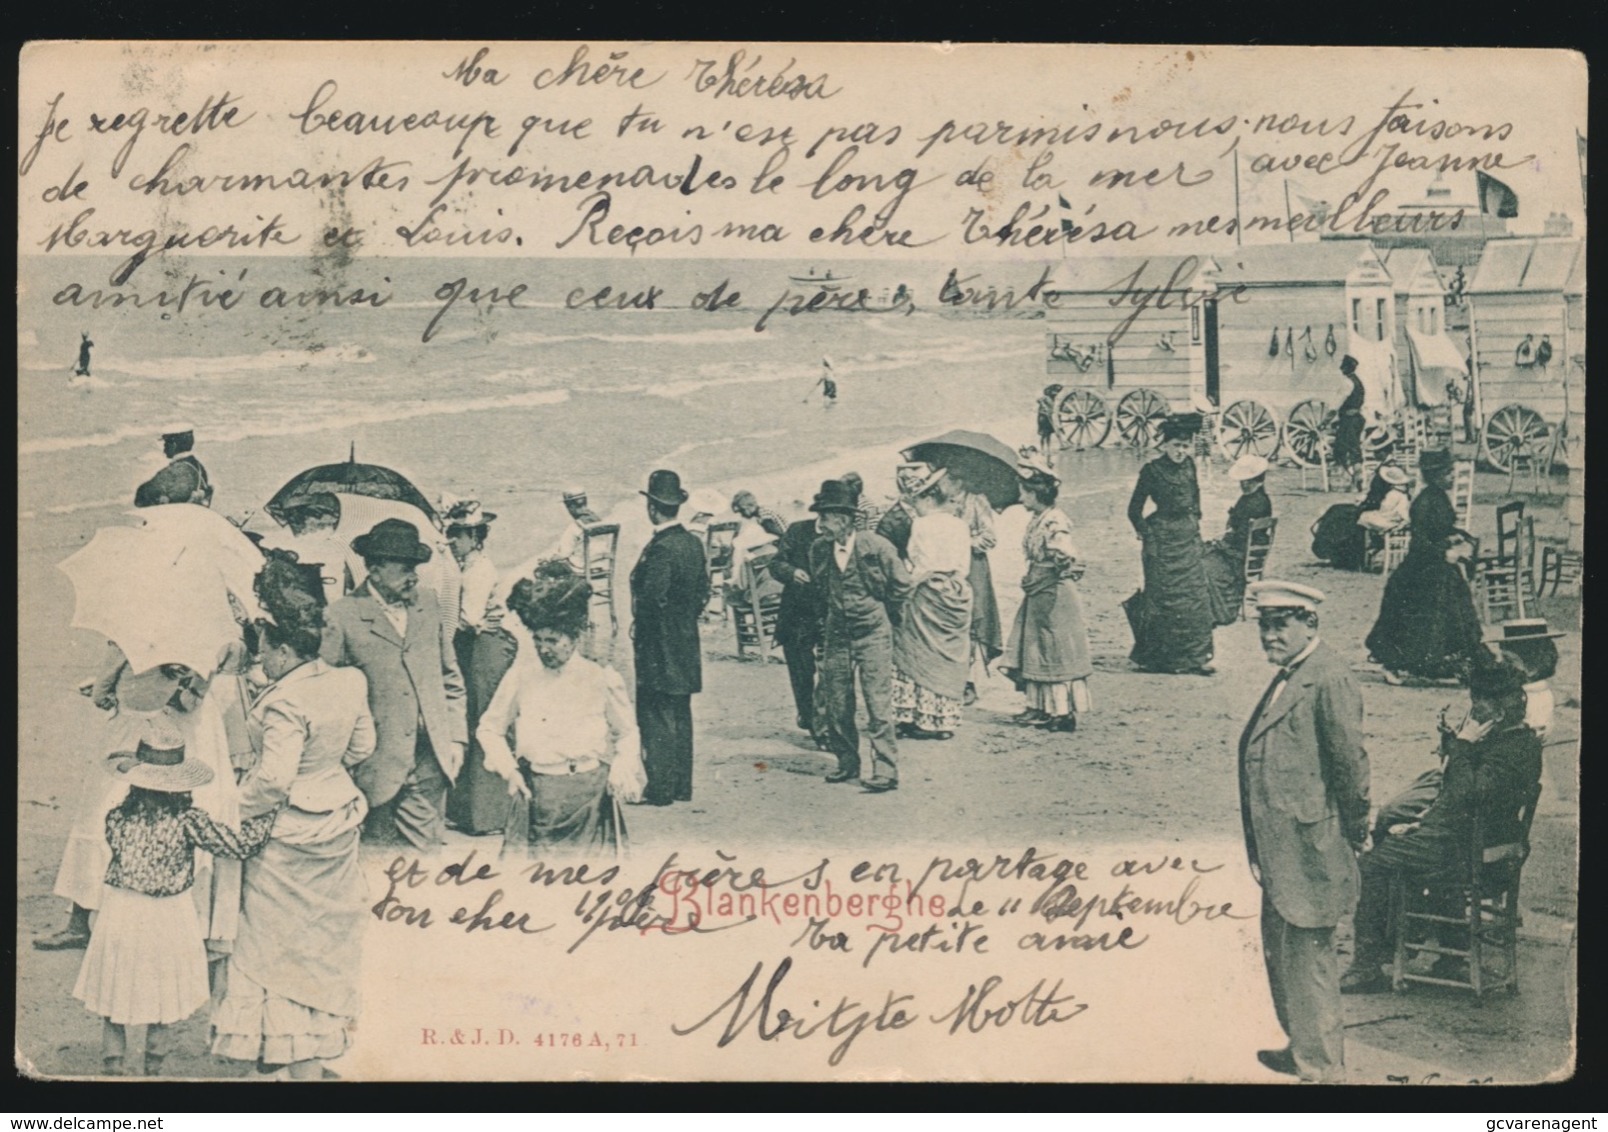 Ma chère Thérésa
Je regrette beaucoup que tu n'est pas parmis nous, nous faisons
de charmantes promenades le long de la mer avec Jeanne
Marguerite et Louis. Reçois ma chère Thérésa mes meilleurs
amitié ainsi que ceux de père, tante Sylvie
et de mes frères en partage avec
ton cher père Blankenberghe Le 11 Septembre
Ta petite amie
Mitzte Motte
R. & J. D. 4176 A, 71
delcampe.net
gcvarenagent